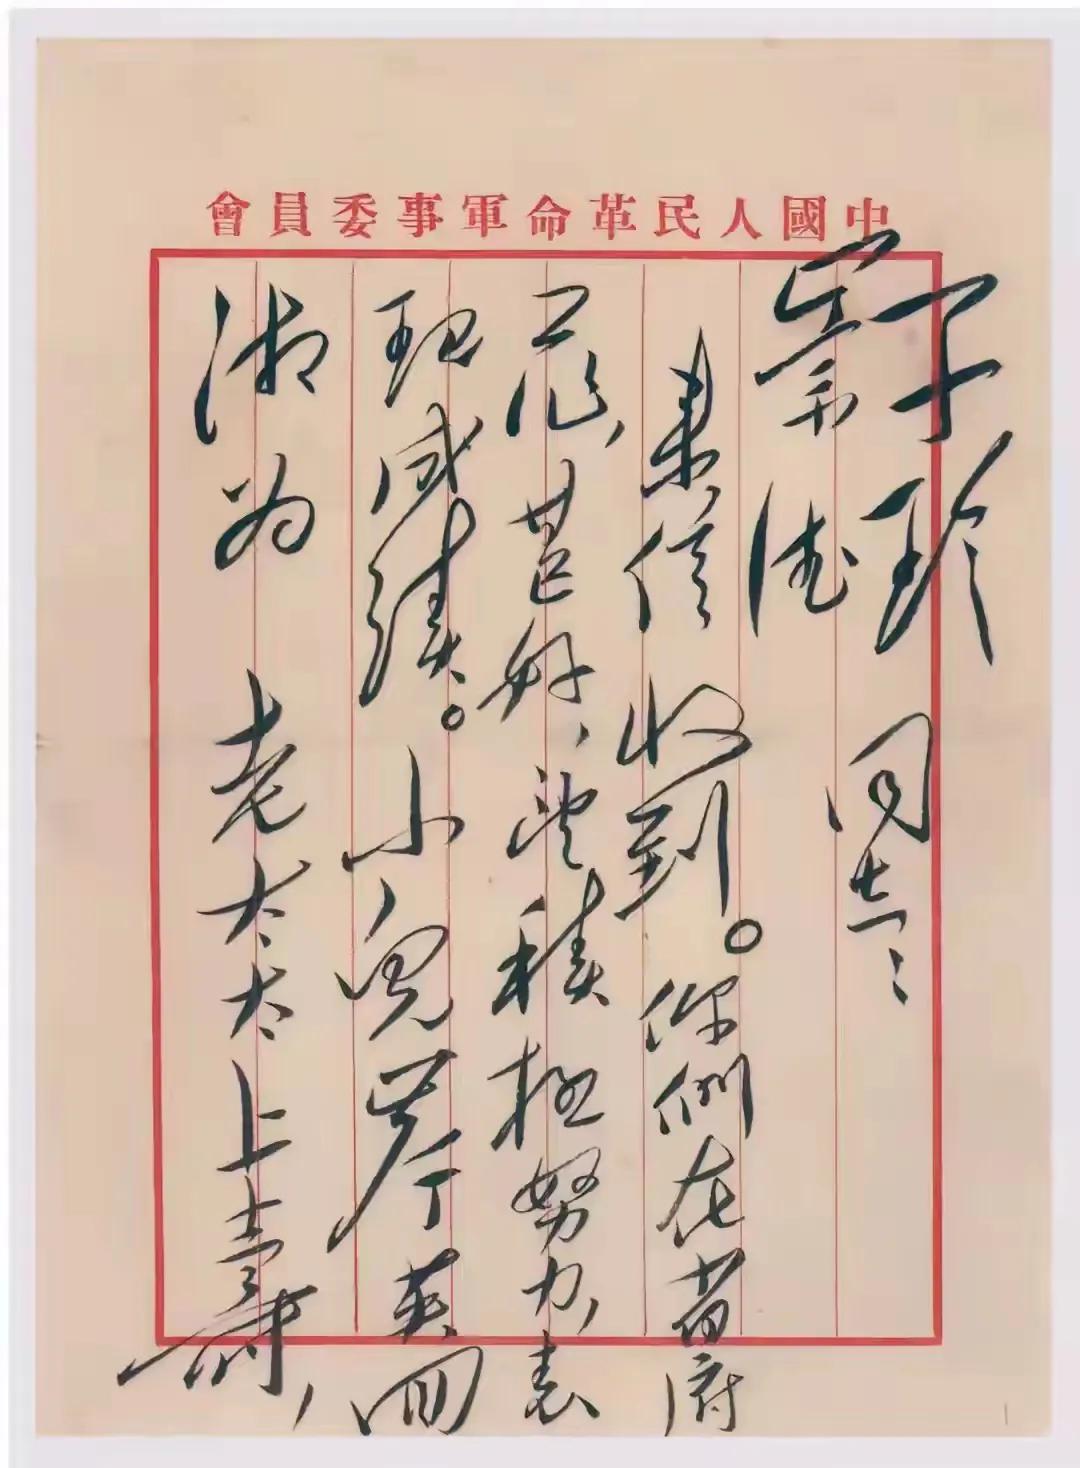 中國人民革命軍事委員會
子珍
崇德
同志：
来信收到。你們在省府
工作，甚好，望積極努力，表
現成績。小兒岸英回
湘为老太太上壽，